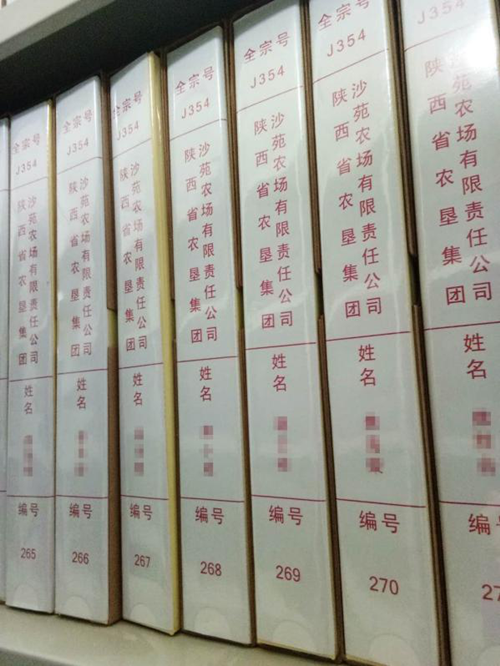 全宗号
J354
陕西省农垦集团
沙苑农场有限责任公司
姓名
编号
265
全宗号
J354
陕西省农垦集团
沙苑农场有限责任公司
姓名
编号
266
全宗号
J354
陕西省农垦集团
沙苑农场有限责任公司
姓名
编号
267
全宗号
J354
陕西省农垦集团
沙苑农场有限责任公司
姓名
编号
268
全宗号
J354
陕西省农垦集团
沙苑农场有限责任公司
姓名
编号
269
全宗号
J354
陕西省农垦集团
沙苑农场有限责任公司
姓名
编号
270
J354
陕西省农垦集团
沙苑农场有限责任公司
姓名
编号